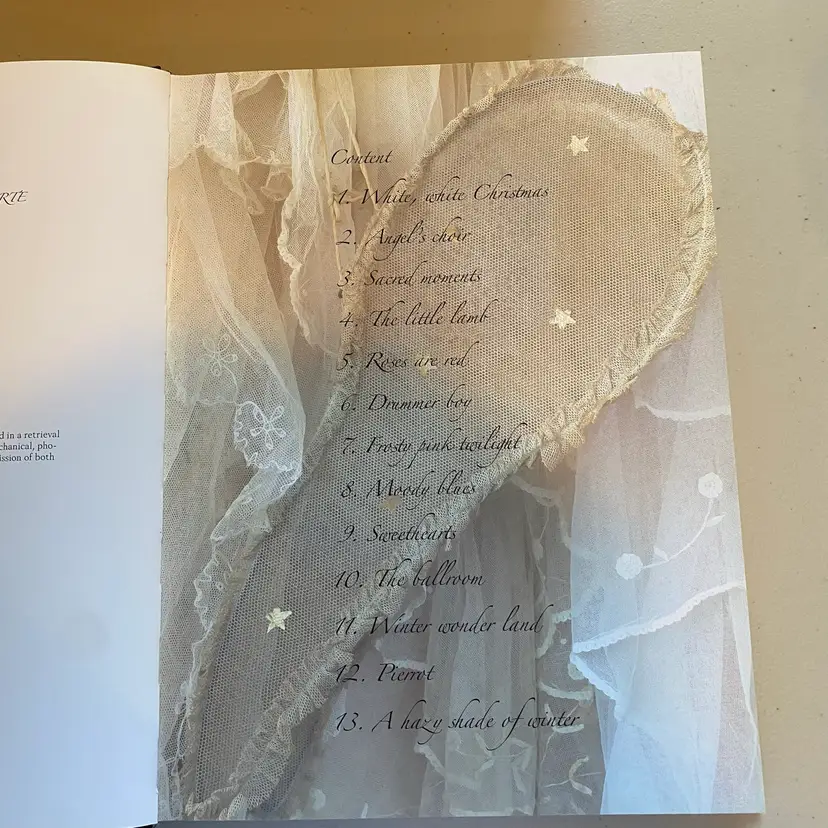 RTE
d in a retrieval
chanical, pho-
ission of both
Content
1. White, white Christmas
2. Angel's choir
3. Sacred moments
4. The little lamb
5. Roses are red
6. Drummer boy
7. Frosty pink twilight
8. Moody blues
9. Sweethearts
10. The ballroom
11. Winter wonder land
12. Pierrot
13. A hazy shade of winter